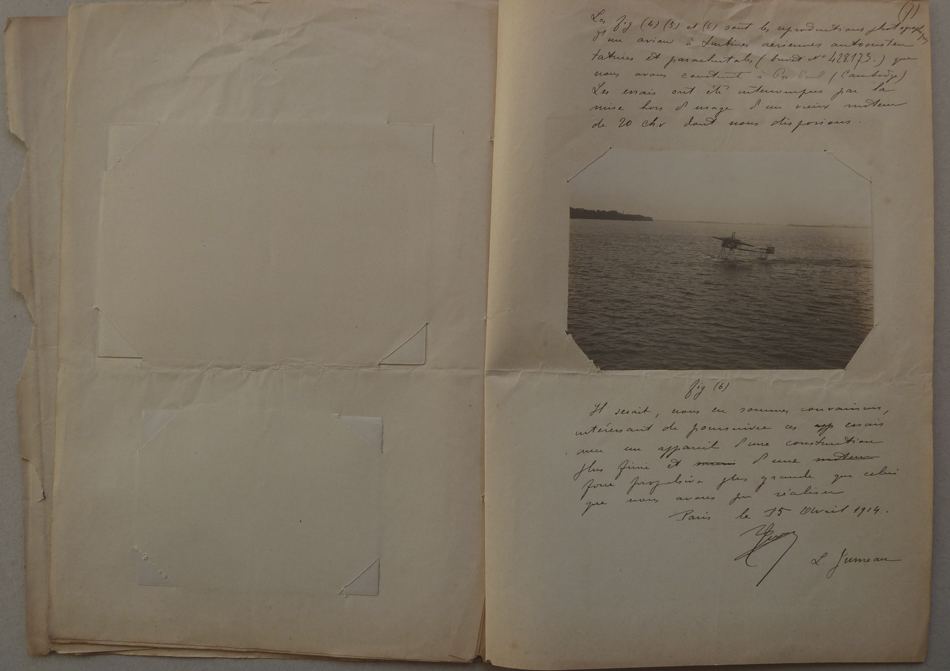 (7)
Les fig (4) (5) et (6) sont les reproductions photograph
d'un avion à turbines aériennes
et parachutales (brevet n° 428173.) que
nous avons construit à (Cambodge)
Les essais ont été interrompus par la
mise hors d'usage d'un vieux moteur
de 20 chv dont nous disposions.
fig (6)
Il serait, nous en sommes convaincus,
intéressant de poursuivre ces essais
avec un appareil d'une construction
plus finie et d'une
force propulsive plus grande que celui
que nous avons pu réaliser
Paris le 15 Avril 1914.
L Jumeau